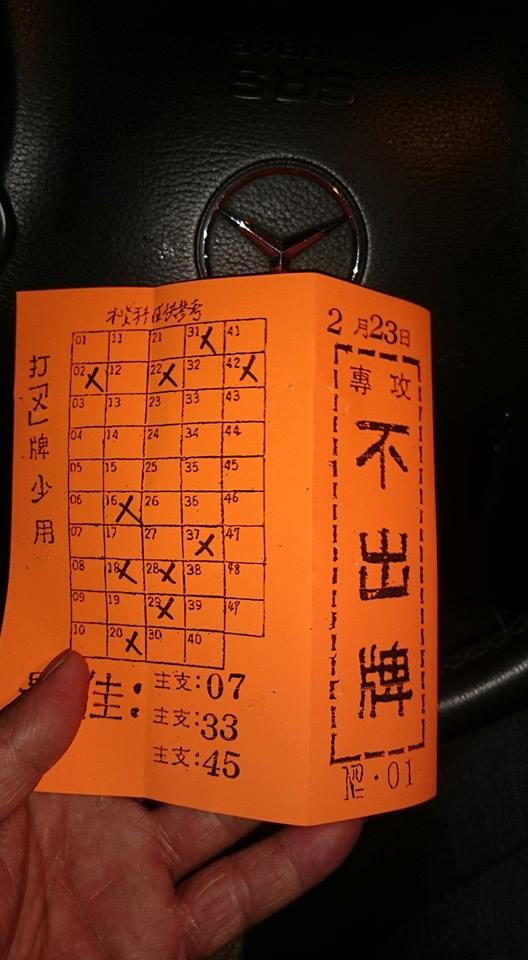 SRS
2月23日
專攻
不出牌
№.01
打「X」牌少用
01 11 21 31 X 41
02 X 12 22 X 32 42 X
03 13 23 33 43
04 14 24 34 44
05 15 25 35 45
06 16 X 26 36 46
07 17 27 37 X 47
08 18 X 28 X 38 48
09 19 29 X 39 49
10 20 X 30 40
主支:07
主支:33
主支:45